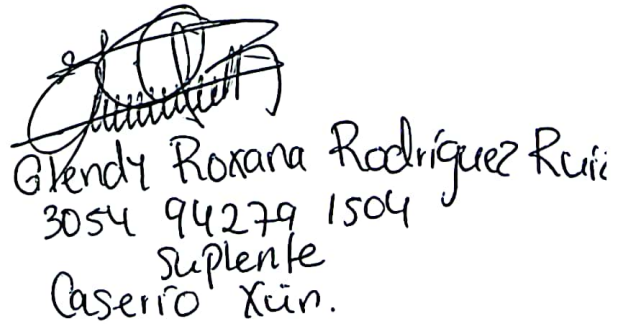 Glendy Roxana Rodríguez Ruiz
3054 94279 1504
suplente
Caserío Xün.